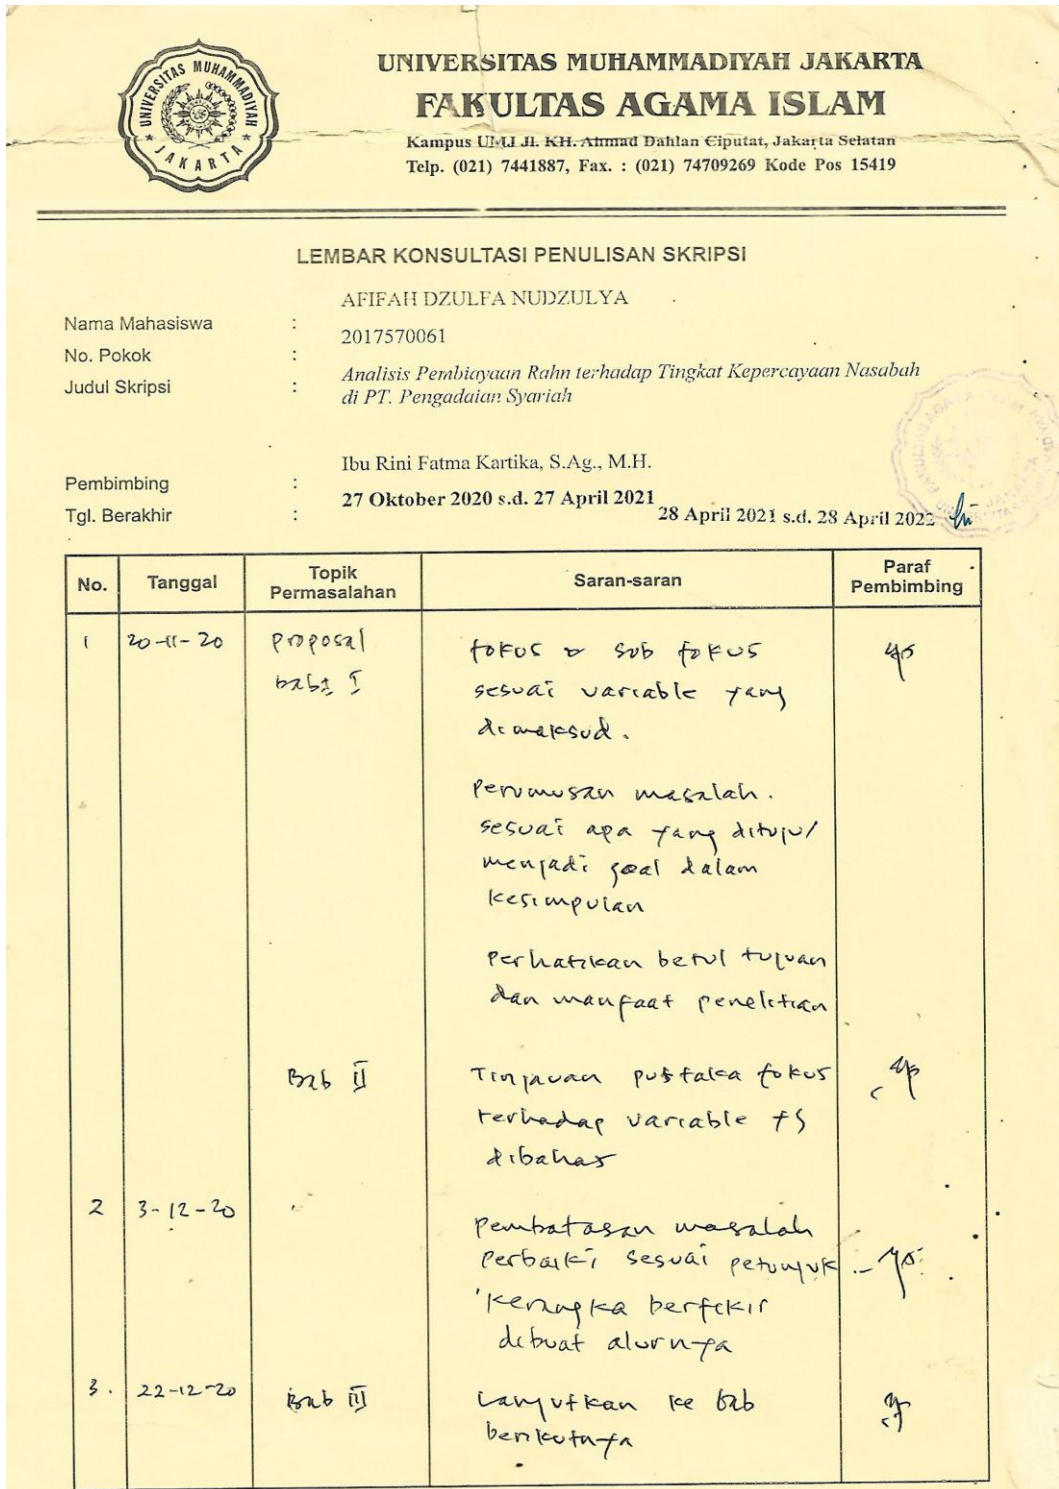 UNIVERSITAS MUHAMMADIYAH JAKARTA
UNIVERSITAS MUHAMMADIYAH JAKARTA
FAKULTAS AGAMA ISLAM
Kampus UMJ Jl. KH. Ahmad Dahlan Ciputat, Jakarta Selatan
Telp. (021) 7441887, Fax. : (021) 74709269 Kode Pos 15419
LEMBAR KONSULTASI PENULISAN SKRIPSI
AFIFAH DZULFA NUDZULYA
Nama Mahasiswa :
2017570061
No. Pokok :
Judul Skripsi : Analisis Pembiayaan Rahn terhadap Tingkat Kepercayaan Nasabah
di PT. Pengadaian Syariah
Ibu Rini Fatma Kartika, S.Ag., M.H.
Pembimbing :
27 Oktober 2020 s.d. 27 April 2021
Tgl. Berakhir : 28 April 2021 s.d. 28 April 2022
No. Tanggal Topik Permasalahan Saran-saran Paraf Pembimbing
1 20-11-20 Proposal fokus & sub fokus
bab I sesuai variable yang
dimaksud.
Perumusan masalah.
sesuai apa yang dituju/
menjadi goal dalam
kesimpulan
Perhatikan betul tujuan
dan manfaat penelitian
Bab II Tinjauan pustaka fokus
terhadap variable yg
dibahas
2 3-12-20
pembatasan masalah
perbaiki sesuai petunjuk
kerangka berfikir
dibuat alurnya
3. 22-12-20 Bab III Lanjutkan ke bab
berikutnya